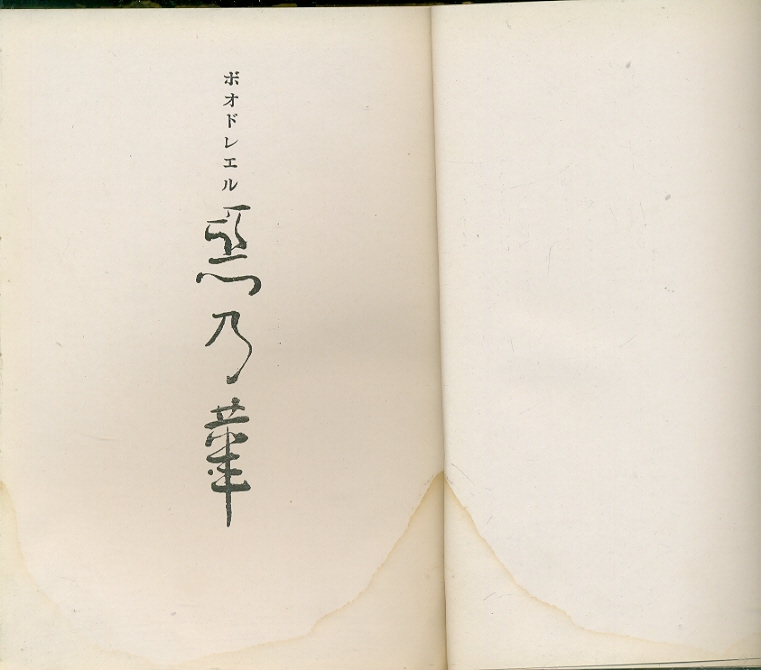 ボオドレエル
悪乃華